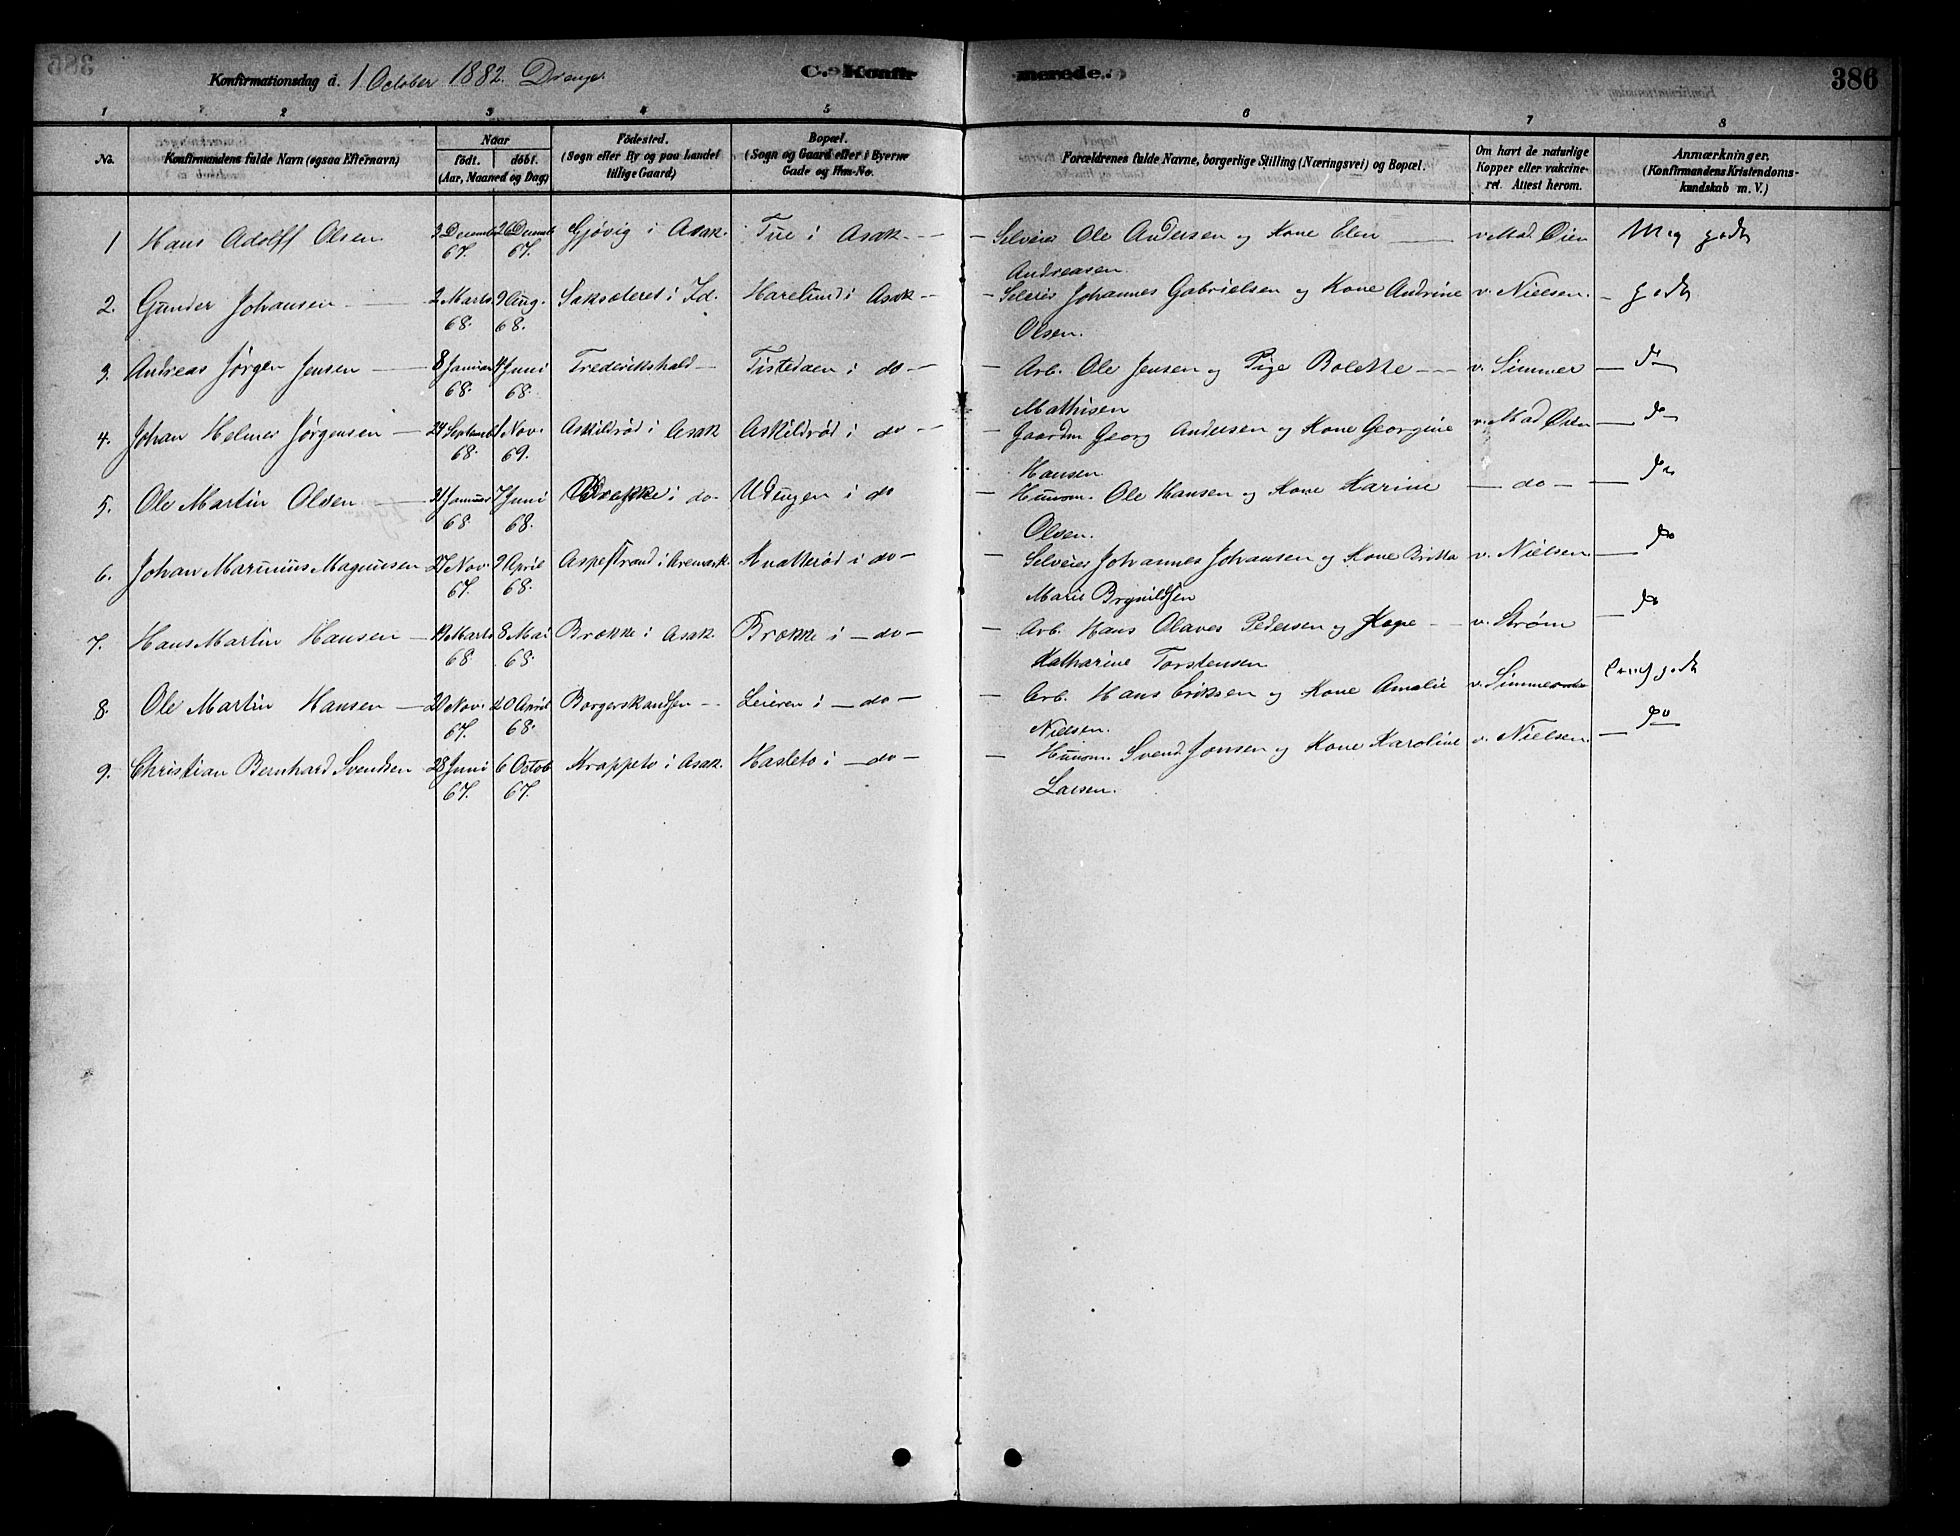 Konfirmationsdag d. 1 October 1882. Drenge. C. Konfirmerede. 386
1 2 3 4 5 6 7 8
No. Konfirmandens fulde Navn (ogsaa Efternavn) Naar födt. döbt. (Aar, Maaned og Dag) Födested. (Sogn eller By og paa Landet tillige Gaard) Bopæl. (Sogn og Gaard eller i Byerne Gade og Hus-No. Forældrenes fulde Navne, borgerlige Stilling (Næringsvei) og Bopæl. Om havt de naturlige Kopper eller vakcineret. Attest herom. Anmærkninger. (Konfirmandens Kristendomskundskab m. V.)
1 Hans Adolff Olsen 3 Decemb 26 Decemb Gjøvig i Asak. Tue i Asak. — — Selveier Ole Andersen og Kone Elen — v. Mad. Øien Meg godt
67. 67. Andreasen.
2. Gunder Johansen — 2 Marts 9 Aug. Saksæteret i Id. Harelund i Asak — — Seleier Johannes Gabrielsen og Kone Andrine v. Nielsen. — godt
68. 68. Olsen.
3. Andreas Jørgen Jensen — 8 Januar 4 Juni Frederikshald — Tistedaen i do — — Arb. Ole Jensen og Pige Bolette — v. Simmer — do
68. 68. Mathisen
4. Johan Helmer Jørgensen — 24 Septemb 1 Nov. Askildrød i Asak Askildrød i do — — Gaardm Georg Andersen og Kone Georgine v. Mad Øien — do
68. 69. Hansen
5. Ole Martin Olsen — 31 Januar 7 Juni Brække i do. Udengen i do — Huusm. Ole Hansen og Kone Karine — do — — do
68 68. Olsen.
6. Johan Marinius Magnussen 27 Nov. 9 April Aspestrand i Aremark. Knatterød i do — — Selveier Johannes Johansen og Kone Britta v. Nielsen — do
67. 68. Marie Brynildsen
7. Hans Martin Hansen — 19 Marts 8 Mai Brække i Asak Brække i — do — — Arb. Hans Olaves Pedersen og Kone — v. Strøm — do
68 68. Katharine Torstensen
8. Ole Martin Hansen — 20 Nov. 20 April Borgerskandsen — Leieren i — do — — Arb. Hans Eriksen og Kone Amalie v. Simmer godt
67. 68. Nielsen.
9. Christian Bernhard Svendsen 28 Juni 6 Octob Krappeto i Asak. Hasleto i — do — — Huusm. Svend Jonsen og Kone Karoline v. Nielsen. — do
67. 67. Larsen.